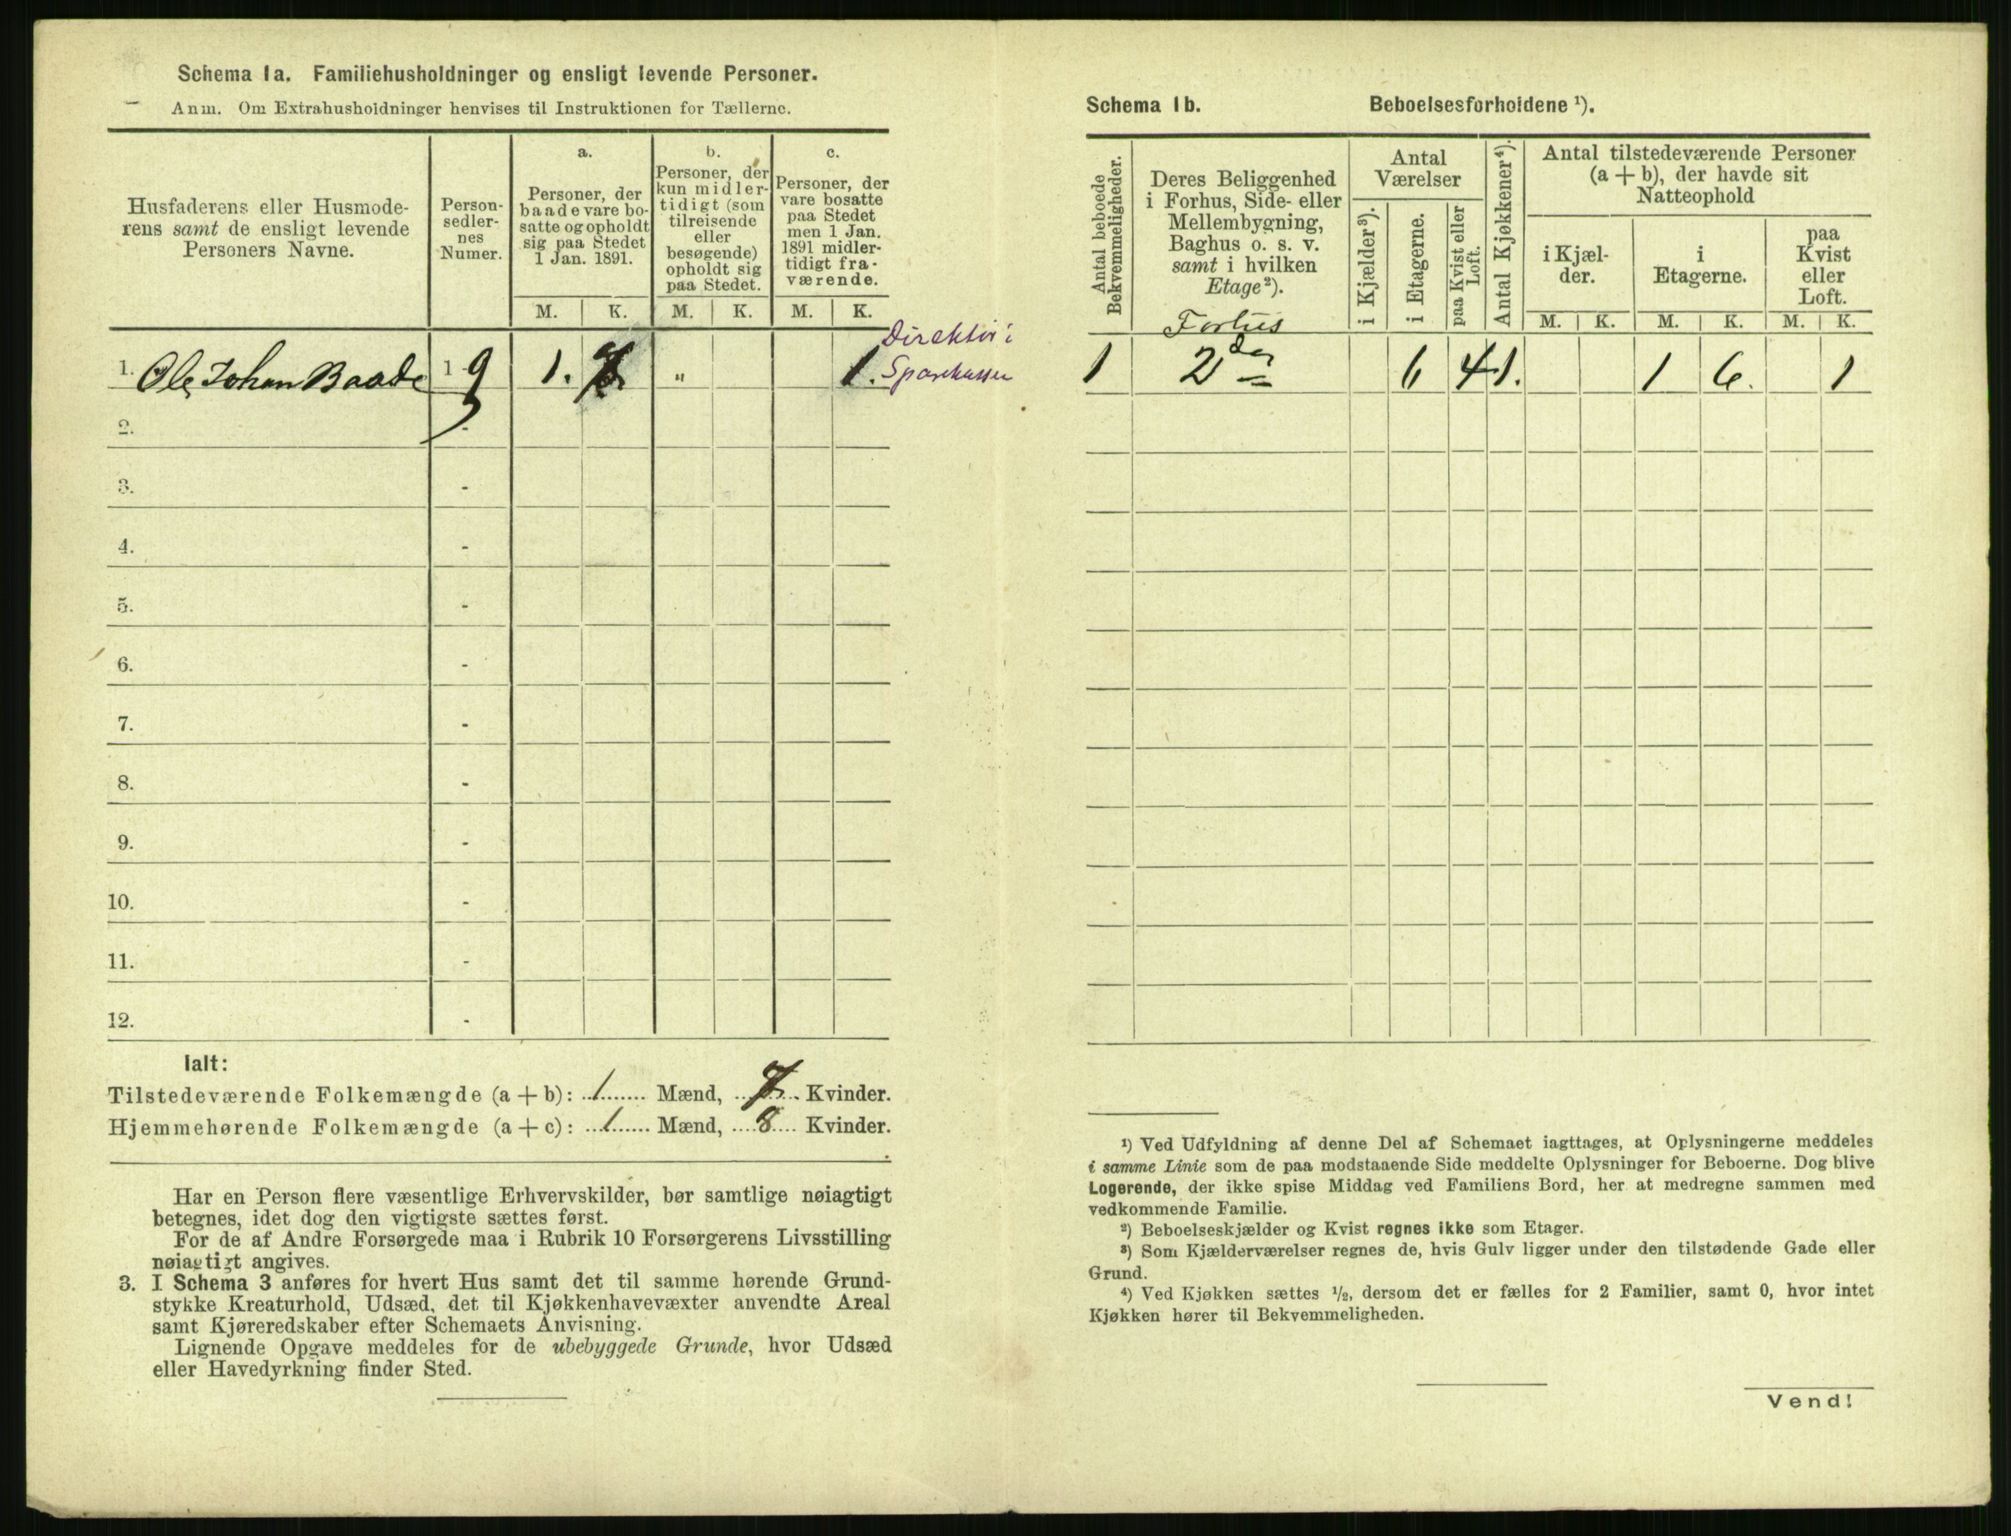 Schema 1a. Familiehusholdninger og ensligt levende Personer.
Anm. Om Extrahusholdninger henvises til Instruktionen for Tællerne.
Husfaderens eller Husmode-
rens samt de ensligt levende
Personers Navne.
Person-
sedler-
nes
Numer.
a.
Personer, der
baade vare bo-
satte og opholdt
sig paa Stedet
1 Jan. 1891.
M. K.
b.
Personer, der
kun midler-
tidigt (som
tilreisende
eller
besøgende)
opholdt sig
paa Stedet.
M. K.
c.
Personer, der
vare bosatte
paa Stedet
men 1 Jan.
1891 midler-
tidigt fra-
værende.
M. K.
Direktør i
Sparekassen
1. Ole Johan Baade 1 - 9 1. 7 " 1.
2. -
3. -
4. -
5. -
6. -
7. -
8. -
9. -
10. -
11. -
12. -
Ialt:
Tilstedeværende Folkemængde (a + b): 1 Mænd, 7 Kvinder.
Hjemmehørende Folkemængde (a + c): 1 Mænd, 8 Kvinder.
Har en Person flere væsentlige Erhvervskilder, bør samtlige nøiagtigt
betegnes, idet dog den vigtigste sættes først.
For de af Andre Forsørgede maa i Rubrik 10 Forsørgerens Livsstilling
nøiagtigt angives.
3. I Schema 3 anføres for hvert Hus samt det til samme hørende Grund-
stykke Kreaturhold, Udsæd, det til Kjøkkenhavevæxter anvendte Areal
samt Kjøreredskaber efter Schemaets Anvisning.
Lignende Opgave meddeles for de ubebyggede Grunde, hvor Udsæd
eller Havedyrkning finder Sted.
Schema 1b. Beboelsesforholdene ¹).
Antal beboede
Bekvemmeligheder.
Deres Beliggenhed
i Forhus, Side- eller
Mellembygning,
Baghus o. s. v.
samt i hvilken
Etage²).
Antal
Værelser
i Kjælder³).
i Etagerne.
paa Kvist eller
Loft.
Antal Kjøkkener⁴).
Antal tilstedeværende Personer
(a + b), der havde sit
Natteophold
i Kjæl-
der.
i
Etagerne.
paa
Kvist
eller
Loft.
M. K. M. K. M. K.
Forhus
1 2den 6 4 1. 1 6. 1
¹) Ved Udfyldning af denne Del af Schemaet iagttages, at Oplysningerne meddeles
i samme Linie som de paa modstaaende Side meddelte Oplysninger for Beboerne. Dog blive
Logerende, der ikke spise Middag ved Familiens Bord, her at medregne sammen med
vedkommende Familie.
²) Beboelseskjælder og Kvist regnes ikke som Etager.
³) Som Kjælderværelser regnes de, hvis Gulv ligger under den tilstødende Gade eller
Grund.
⁴) Ved Kjøkken sættes ½, dersom det er fælles for 2 Familier, samt 0, hvor intet
Kjøkken hører til Bekvemmeligheden.
Vend!